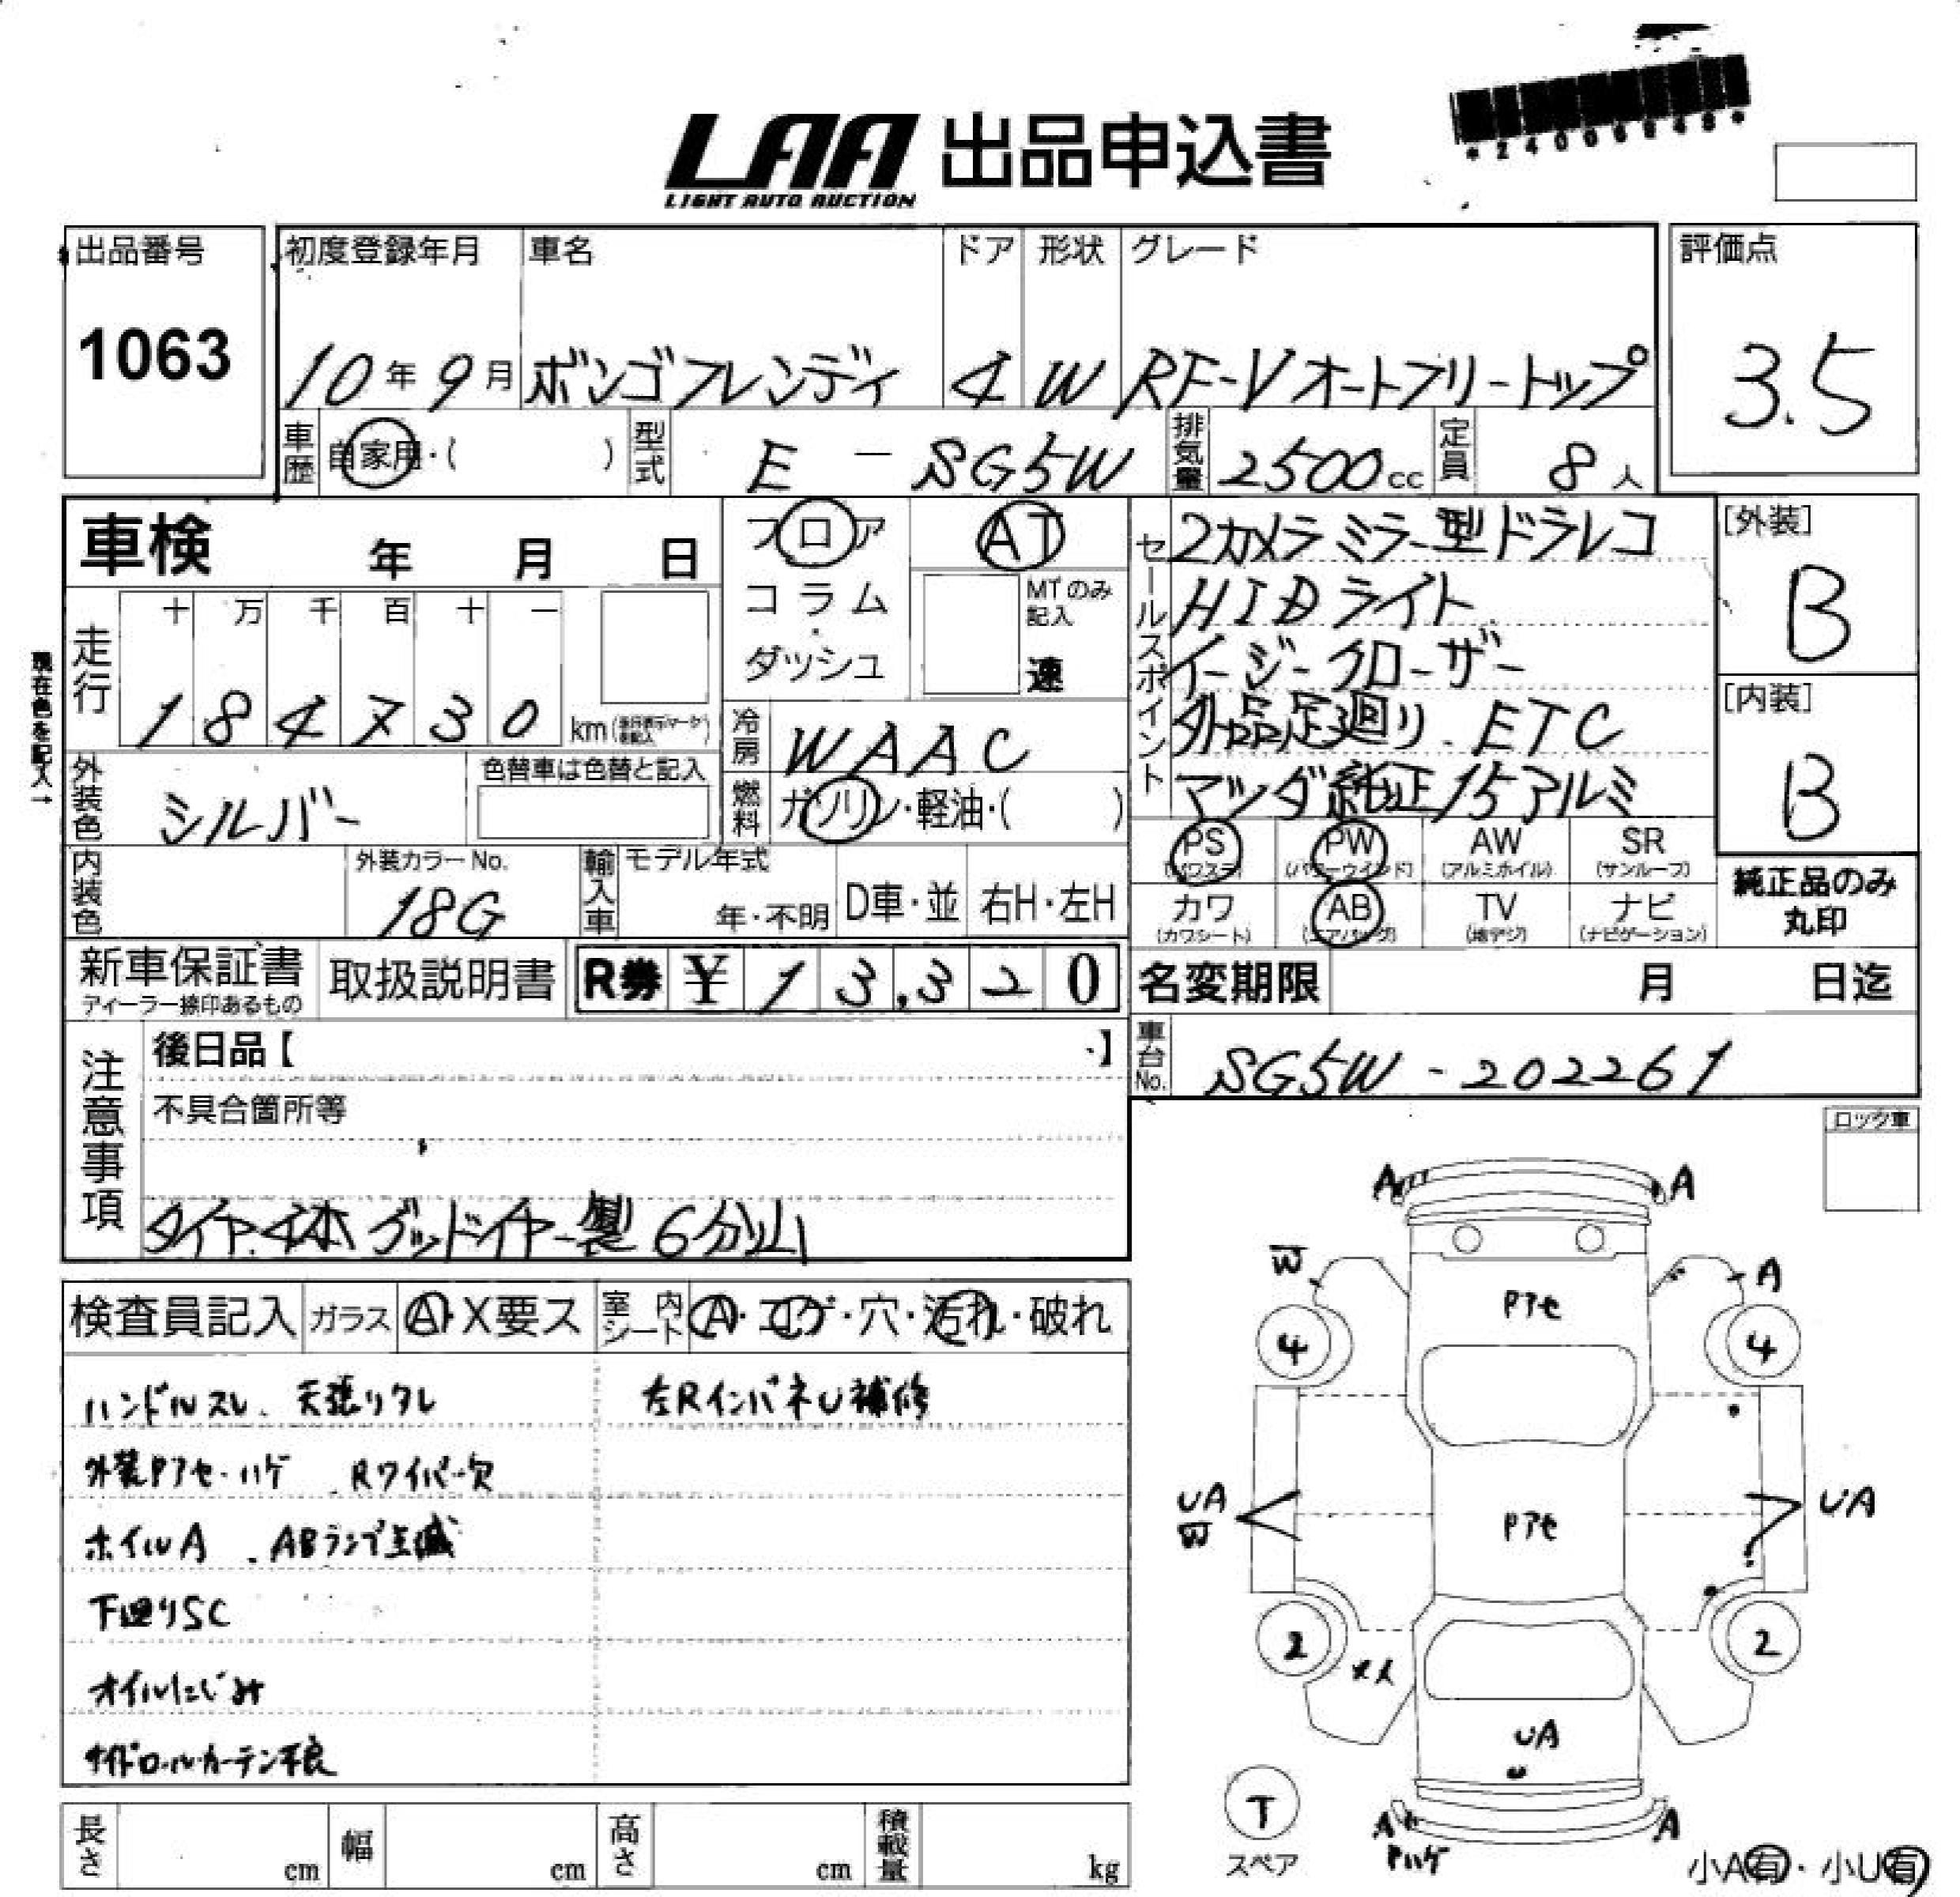 *24006048*
LAA 出品申込書
LIGHT AUTO AUCTION
出品番号 初度登録年月 車名 ドア 形状 グレード 評価点
1063 10年 9月 ボンゴフレンディ 4 W RF-V オートフリートップ 3.5
車歴 自家用・( ) 型式 E - SG5W 排気量 2500cc 定員 8人
車検 年 月 日 フロア AT セールスポイント 2カメラミラー型ドラレコ [外装]
コラム・ダッシュ MTのみ記入 速 HIDライト B
走行 十 万 千 百 十 一 イージークローザー
184730 km 外品足廻り ETC [内装]
現在色を記入→ 冷房 WAAC マツダ純正15アルミ B
外装色 シルバー 色替車は色替と記入 燃料 ガソリン・軽油・( )
PS (パワステ) PW (パワーウインド) AW (アルミホイル) SR (サンルーフ)
内装色 外装カラーNo. 18G 輸入車 モデル年式 年・不明 D車・並 右H・左H
カワ (カワシート) AB (エアバッグ) TV (地デジ) ナビ (ナビゲーション) 純正品のみ丸印
新車保証書 ディーラー捺印あるもの 取扱説明書 R券 ¥13,320 名変期限 月 日迄
注意事項 後日品【 】 車台No. SG5W-202261
不具合箇所等 ロック車
タイヤ4本グッドイヤー製 6分山
検査員記入 ガラス A・X要ス 室内シート A・コゲ・穴・汚れ・破れ
ハンドルスレ、天張りタレ 左RインパネU補修
外装Pアセ・ハゲ Rワイパー欠
ホイルA ABランプ点滅
下回りSC
オイルにじみ
サイドロールカーテン不良
A A
W A
Pアセ
4 4
UA W Pアセ UA
2 2
UA
U
T
スペア
A A
Pハゲ
小A有・小U有
長さ cm 幅 cm 高さ cm 積載量 kg